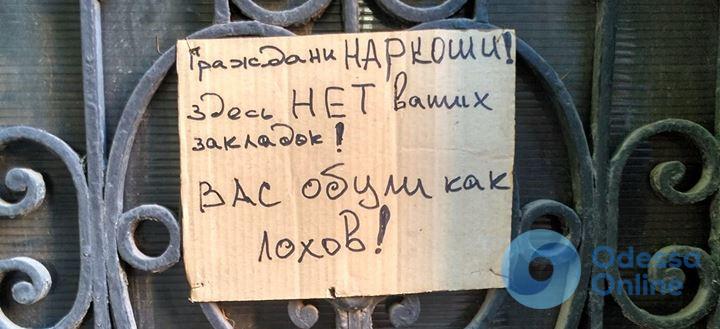 Граждани НАРКОШИ!
здесь НЕТ ваших
закладок!
ВАС обули как
лохов!
Odessa
Online